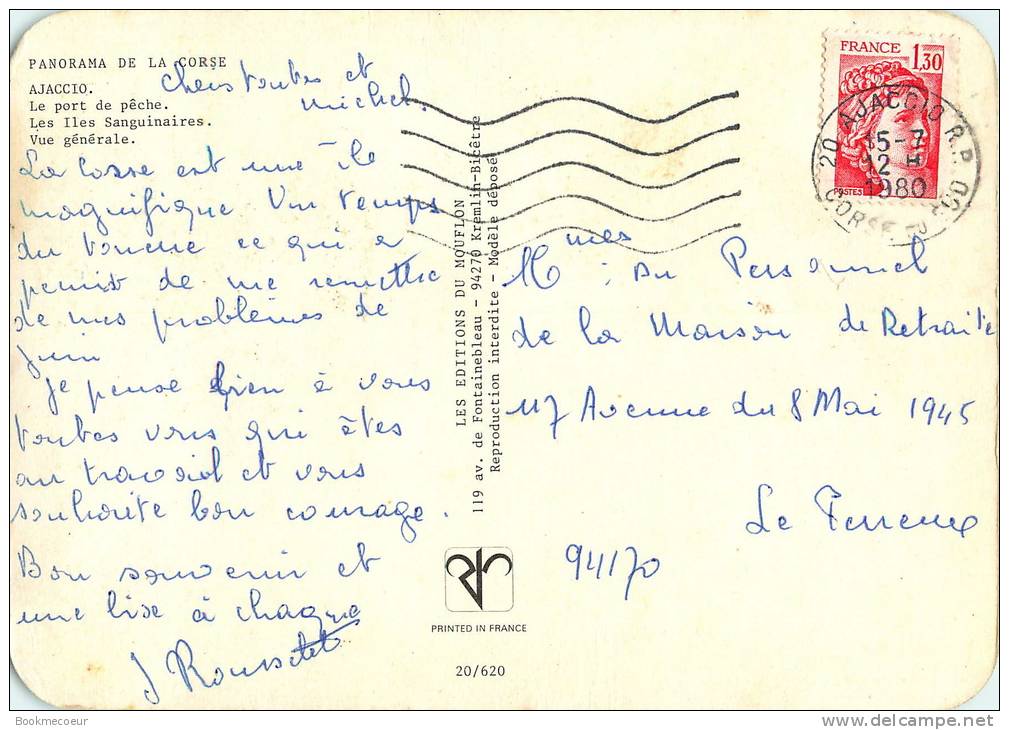 PANORAMA DE LA CORSE
AJACCIO.
Le port de pêche.
Les Iles Sanguinaires.
Vue générale.
Chers toutes et
Michel.
La Corse est une île
magnifique Un temps
du tonnerre ce qui a
permis de me remettre
de mes problèmes de
juin
Je pense bien à vous
toutes vous qui êtes
au travail et vous
souhaite bon courage.
Bon souvenir et
une bise à chaque
J Rousselet
LES EDITIONS DU MOUFLON
119 av. de Fontainebleau - 94270 Kremlin-Bicêtre
Reproduction interdite - Modèle déposé
PRINTED IN FRANCE
20/620
FRANCE
1,30
POSTES
20 AJACCIO R.P.
15-7
12 H
1980
CORSE DU SUD
Mmes du Personnel
de la Maison de Retraite
117 Avenue du 8 Mai 1945
Le Perreux
94170
Bookmecoeur
delcampe.net